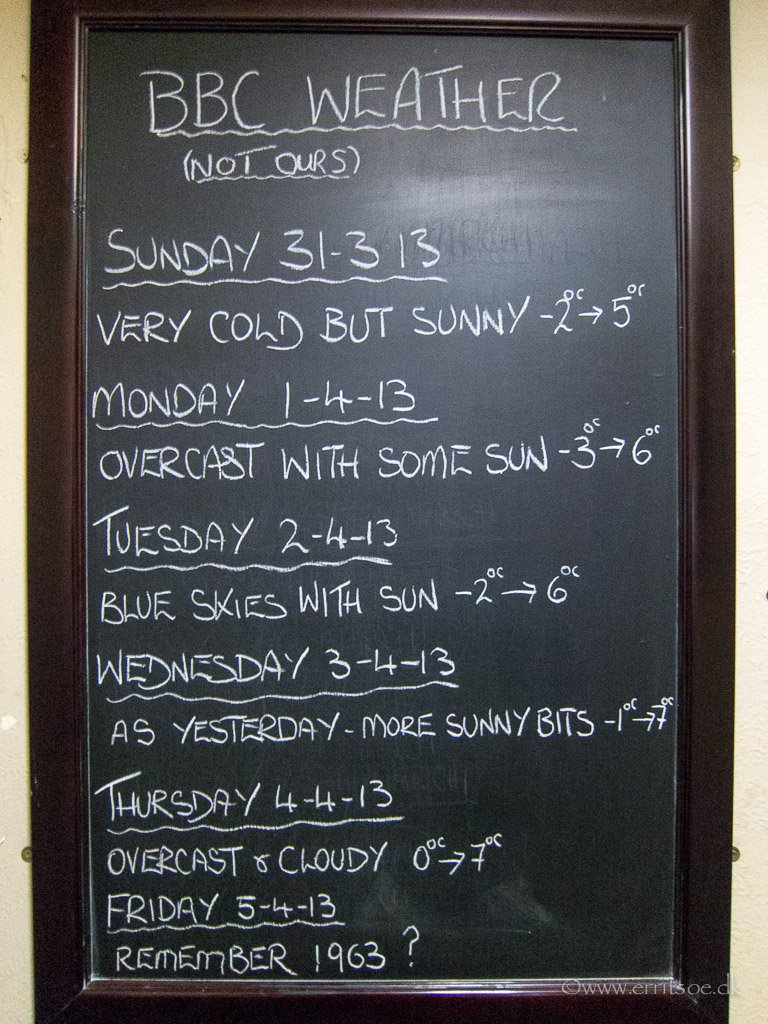 BBC WEATHER
(NOT OURS)
SUNDAY 31-3 13
VERY COLD BUT SUNNY -2°C → 5°C
MONDAY 1-4-13
OVERCAST WITH SOME SUN -3°C → 6°C
TUESDAY 2-4-13
BLUE SKIES WITH SUN -2°C → 6°C
WEDNESDAY 3-4-13
AS YESTERDAY - MORE SUNNY BITS -1°C → 7°C
THURSDAY 4-4-13
OVERCAST & CLOUDY 0°C → 7°C
FRIDAY 5-4-13
REMEMBER 1963 ?
©www.erritsoe.dk